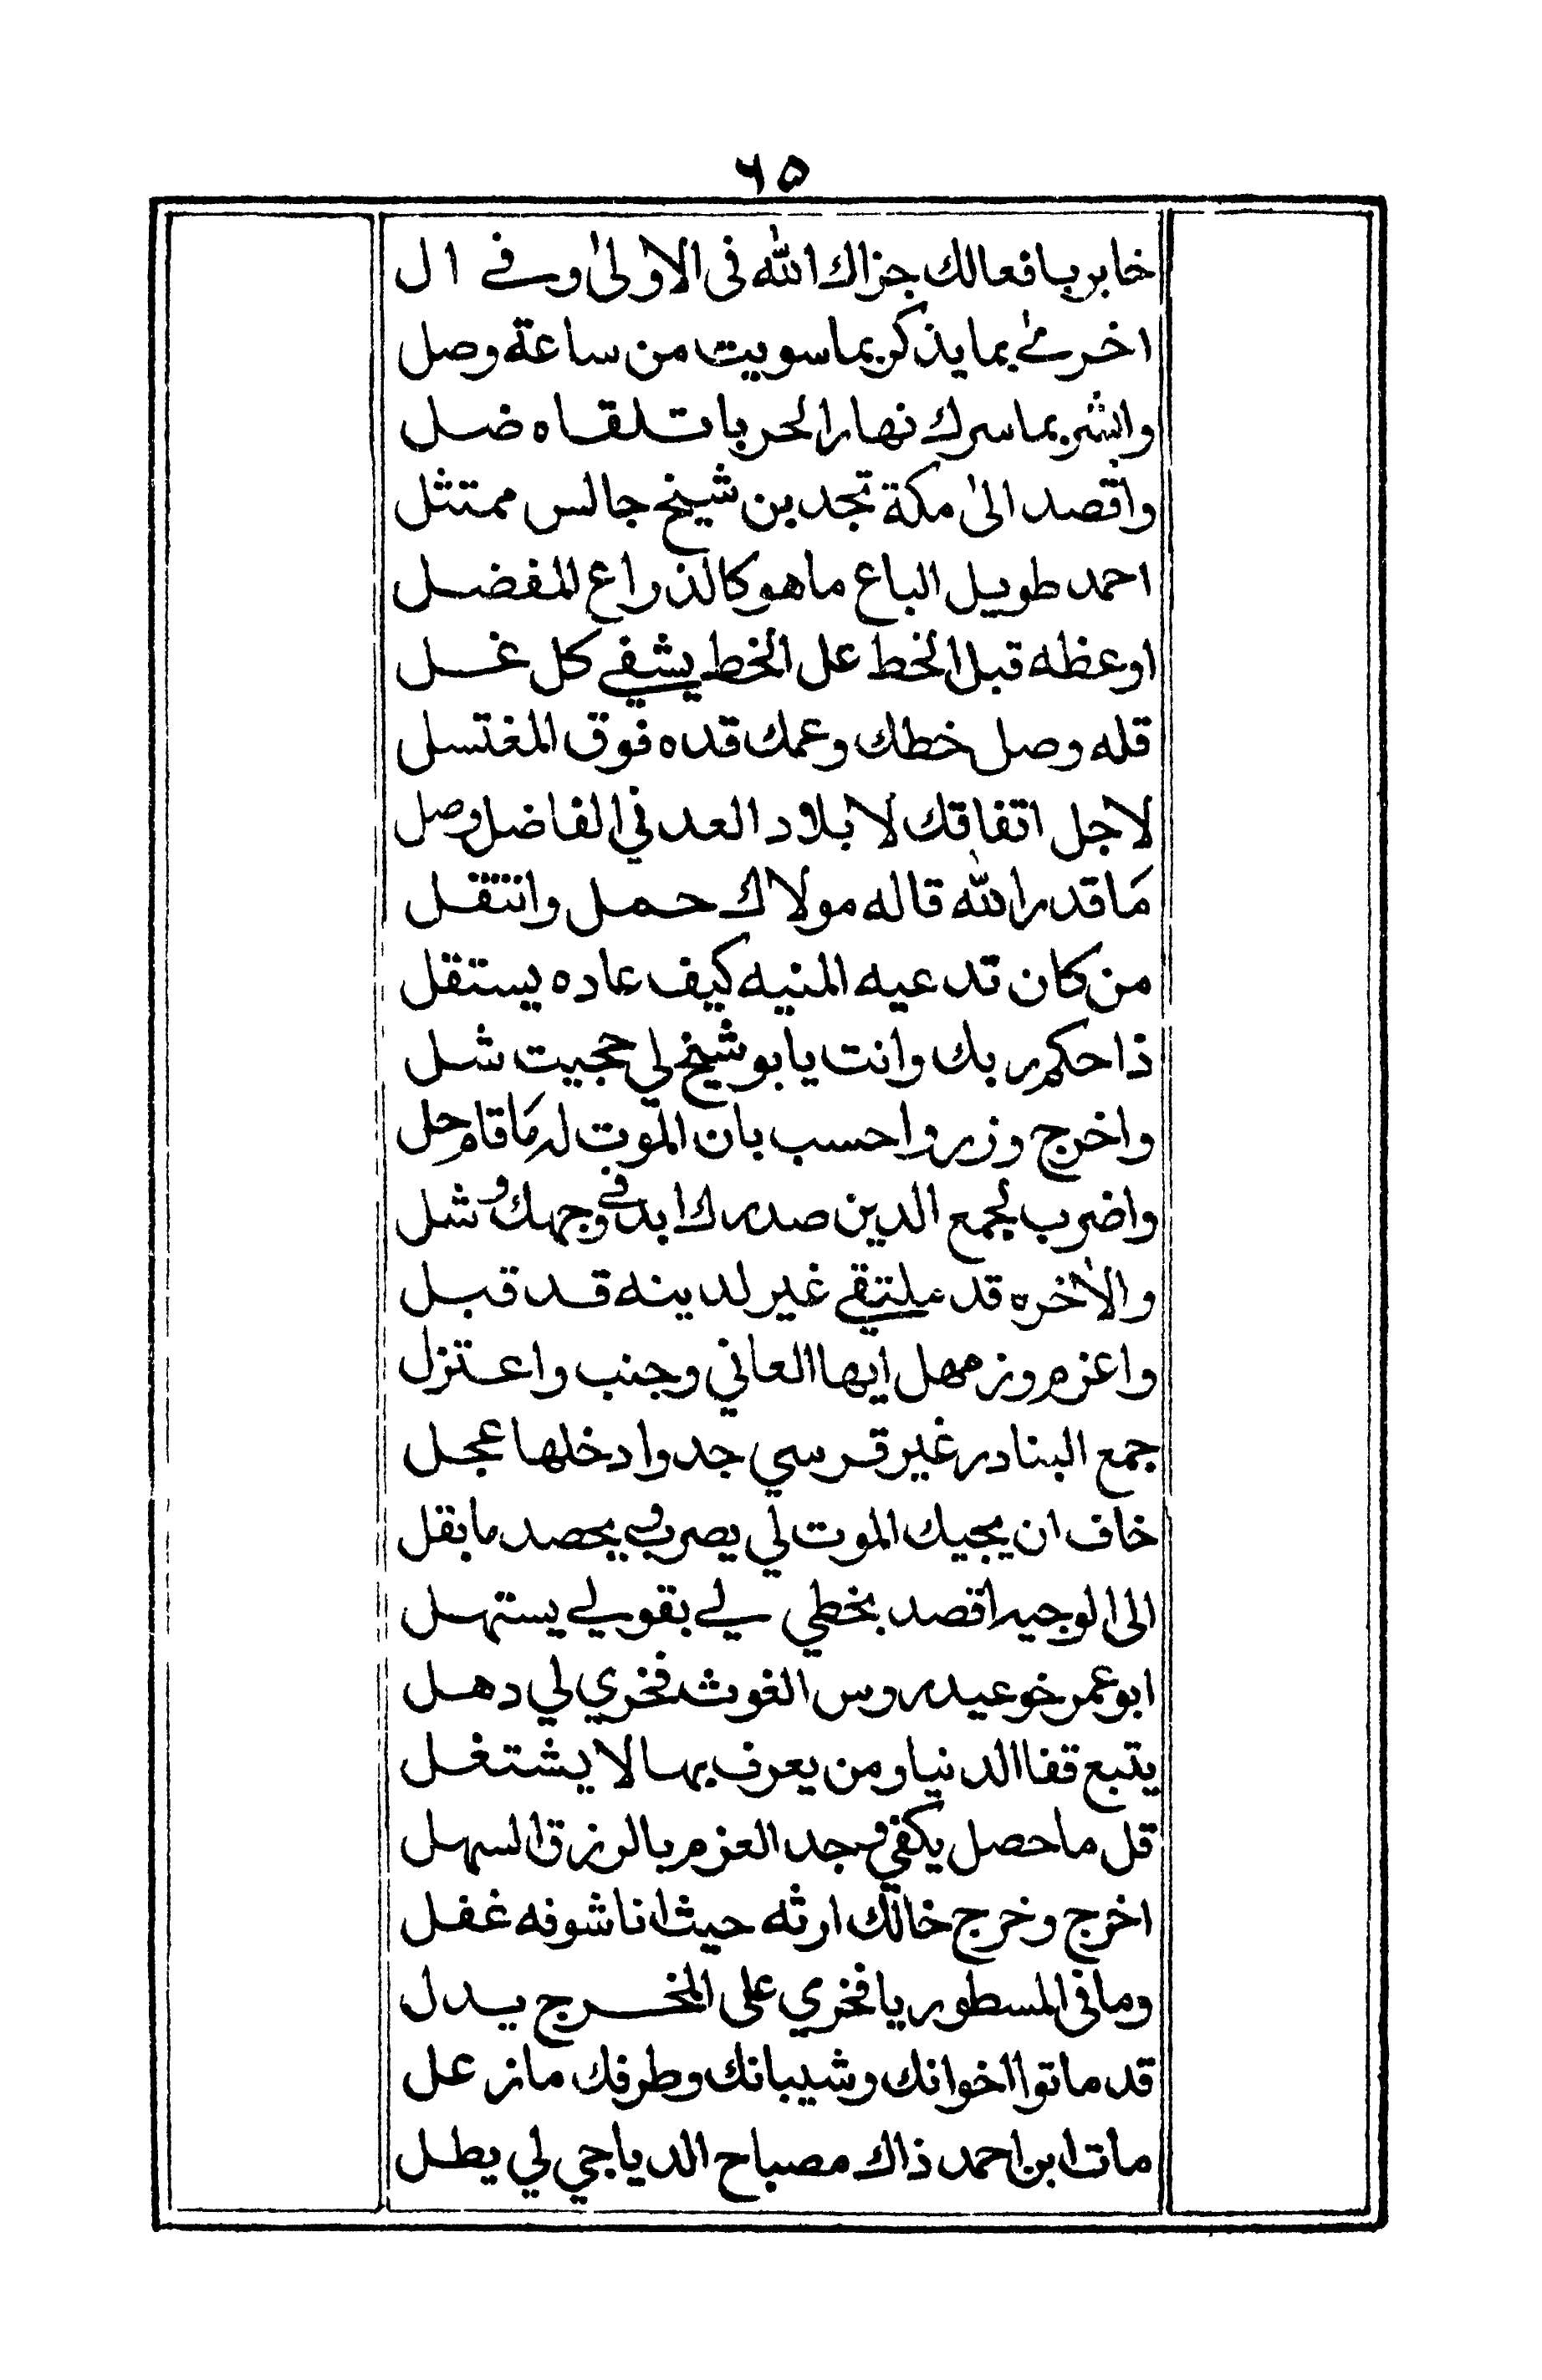 ٦٥
خابر بافعالك جزاك الله فى الاولىٰ وفے ال
اخرىٰ بما يذكر بما سويت من ساعة وصل
وابشر بما سرك نهار الحر باتلقاه ضل
واقصد الىٰ مكة تجد بن شيخ جالس ممتثل
احمد طويل الباع ما هو كالذراع المفضل
اوعظه قبل الخط عل الخط يشفے كل غل
قله وصل خطك وعمك قده فوق المغتسل
لاجل اتفاقك لا بلاد العدني الفاضل وصل
مَا قدر الله قاله مولاك حمل وانتقل
من كان تدعيه المنيه كيف عاده يستقل
ذا حكم ربك وانت يابو شيخ لي حجيت شل
واخرج وزر واحسب بان الموت له مَا قام حل
واضرب لجمع الدين صدرك ابد في وجهك وشل
والاخره قد ملتقے غير لدينه قد قبل
واعزم وزمهل ايها العاني وجنب واعتزل
جمع البنادر غير قرسي جد وادخلها عجل
خاف ان يجيك الموت لي يصرب يحصد ما بقل
الى الوجيه اقصد بخطي لے بقولے يستهل
ابو عمر خو عيدروس الغوث فخري لي دهل
يتبع قفا الدنيا ومن يعرف بها لا يشتغل
قل ما حصل يكفي وجد العزم بالرزق السهل
اخرج وخرج خالك ارثه حيث انا شوفه غفل
وما فى المسطور يا فخري على المخرج يدل
قد ماتوا اخوانك وشيبانك وطرفك ما نزعل
مات ابن احمد ذاك مصباح الدياجي لي يطل